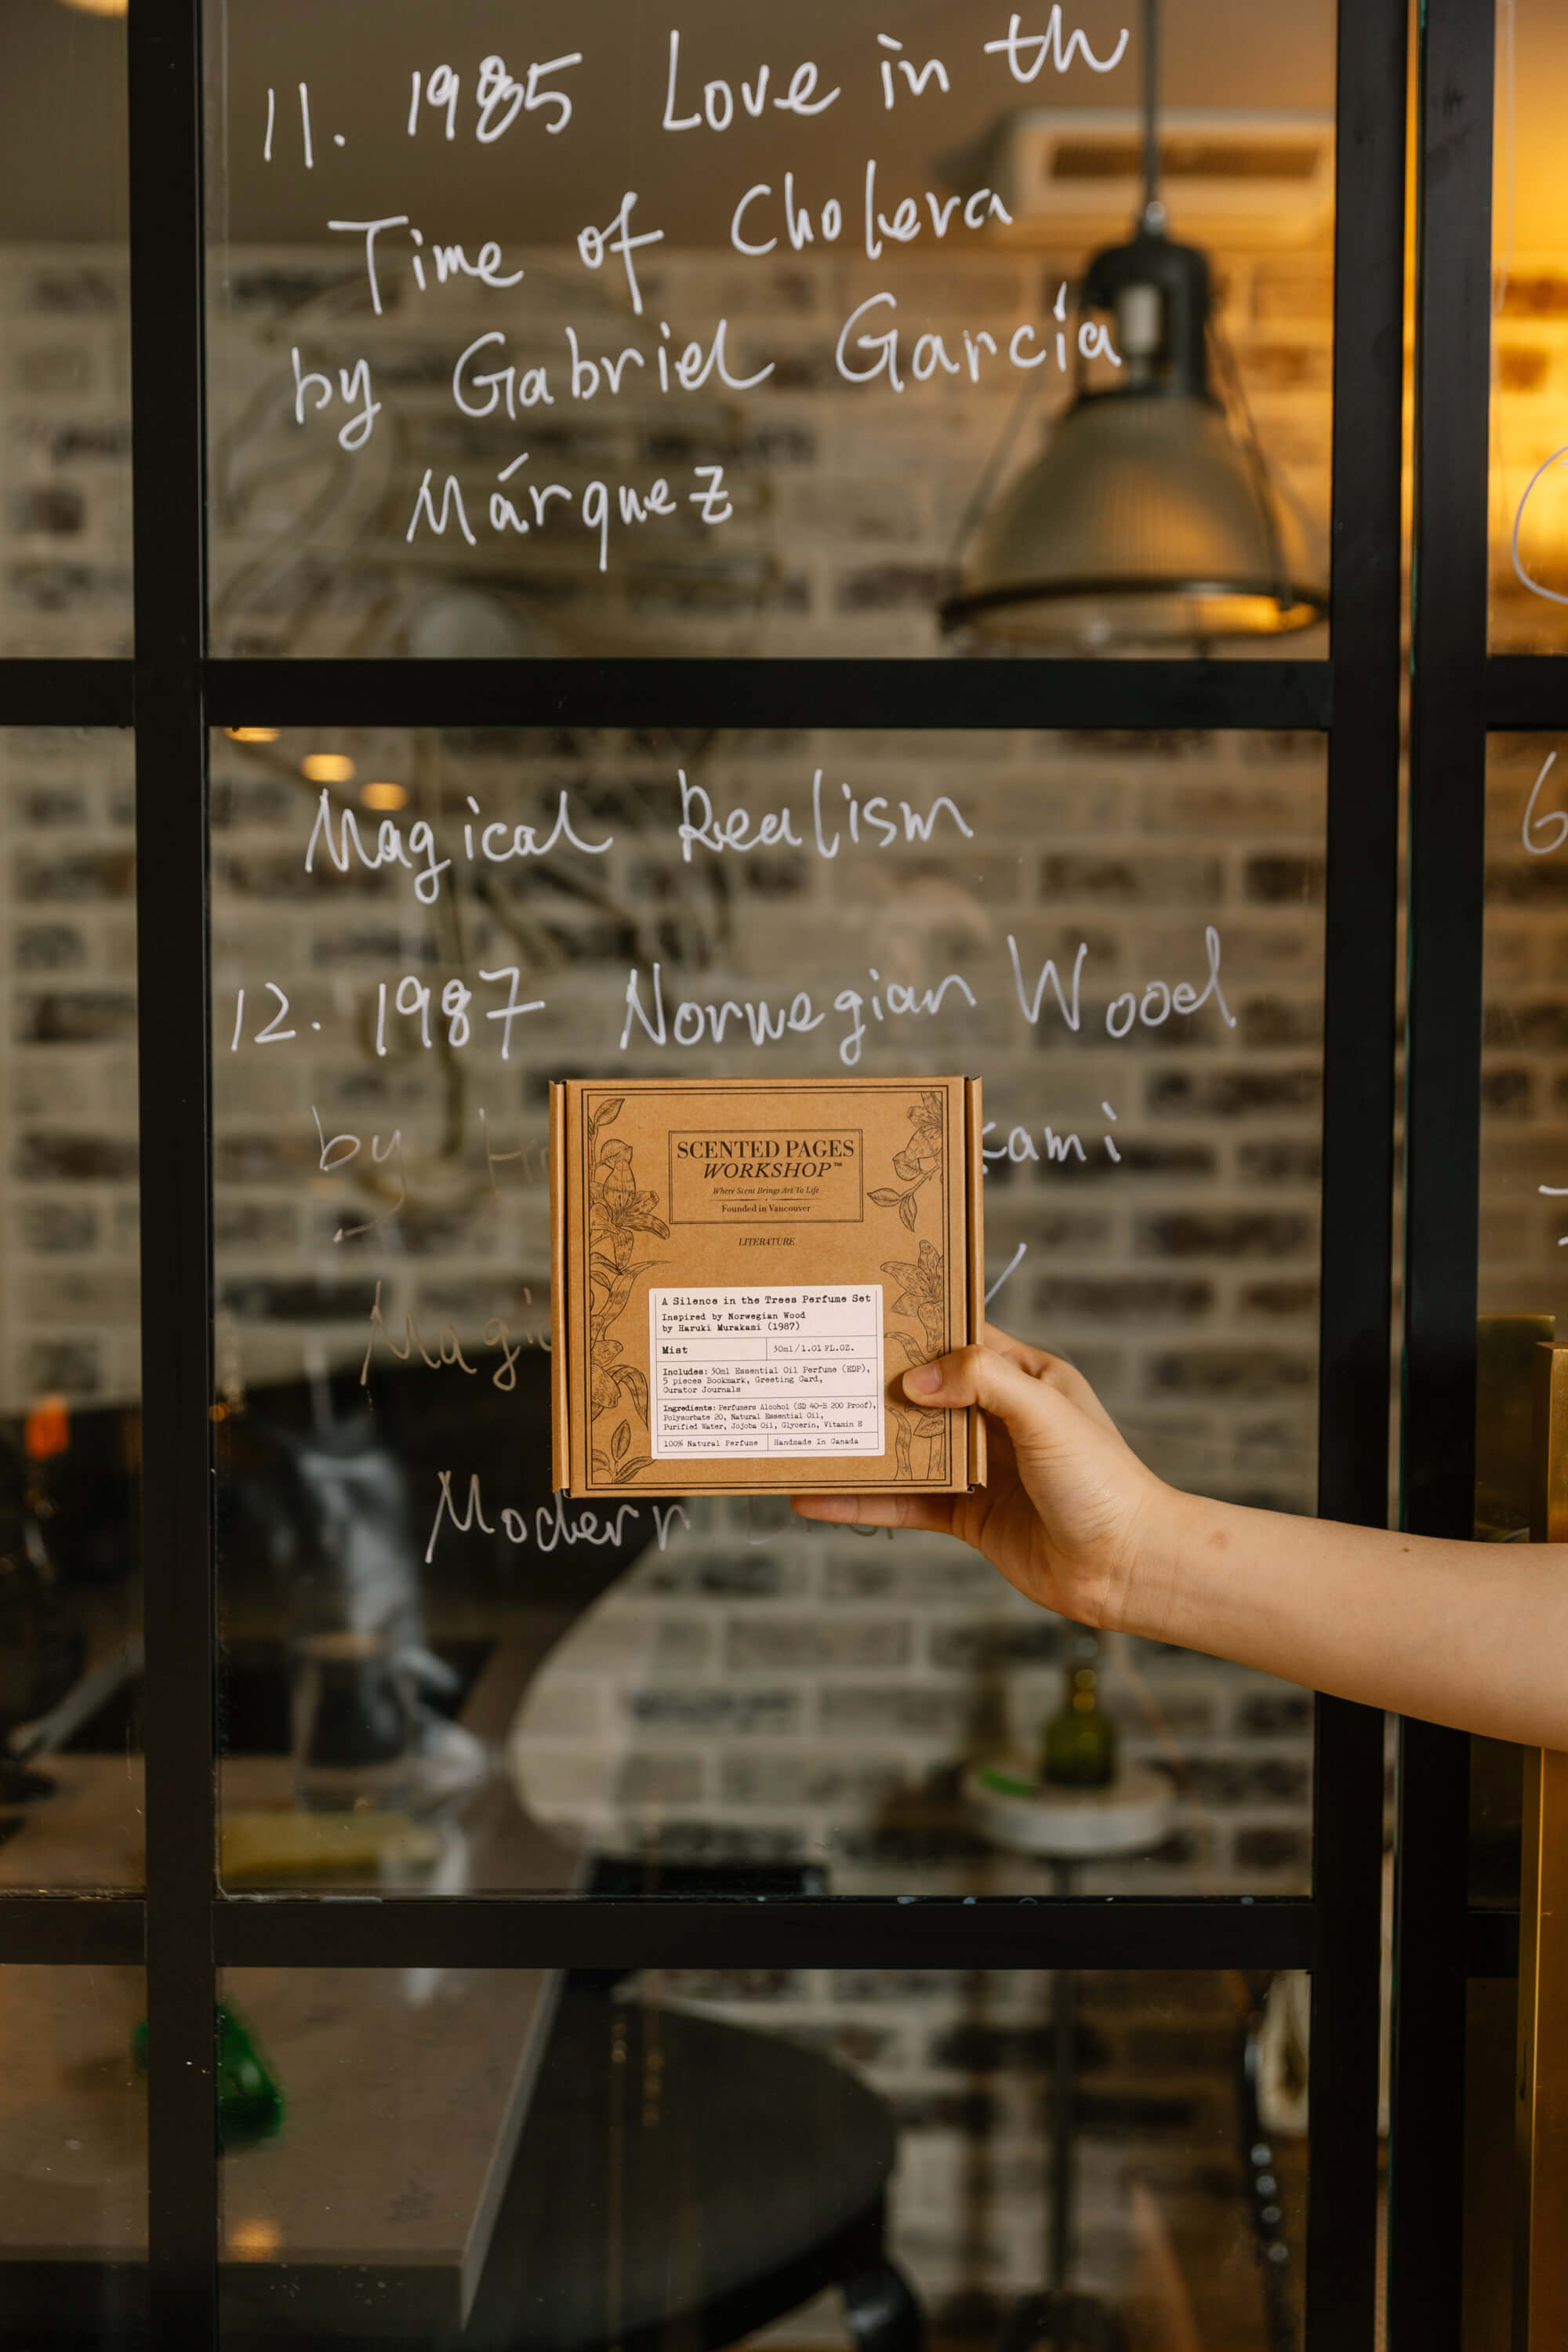 11. 1985 Love in th
Time of Cholera
by Gabriel García
Márquez
Magical Realism
12. 1987 Norwegian Wood
by
kami
Magic
Modern
SCENTED PAGES
WORKSHOP™
Where Scent Brings Art To Life
Founded in Vancouver
LITERATURE
A Silence in the Trees Perfume Set
Inspired by Norwegian Wood
by Haruki Murakami (1987)
Mist 30ml/1.01 FL.OZ.
Includes: 30ml Essential Oil Perfume (EDP),
5 pieces Bookmark, Greeting Card,
Curator Journals
Ingredients: Perfumers Alcohol (SD 40-B 200 Proof),
Polysorbate 20, Natural Essential Oil,
Purified Water, Jojoba Oil, Glycerin, Vitamin E
100% Natural Perfume Handmade In Canada